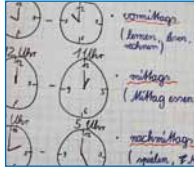 vormittags
(lernen, lesen,
rechnen)
12 Uhr 1 Uhr
mittags
(Mittag essen
Uhr 5 Uhr
nachmittags
(spielen,